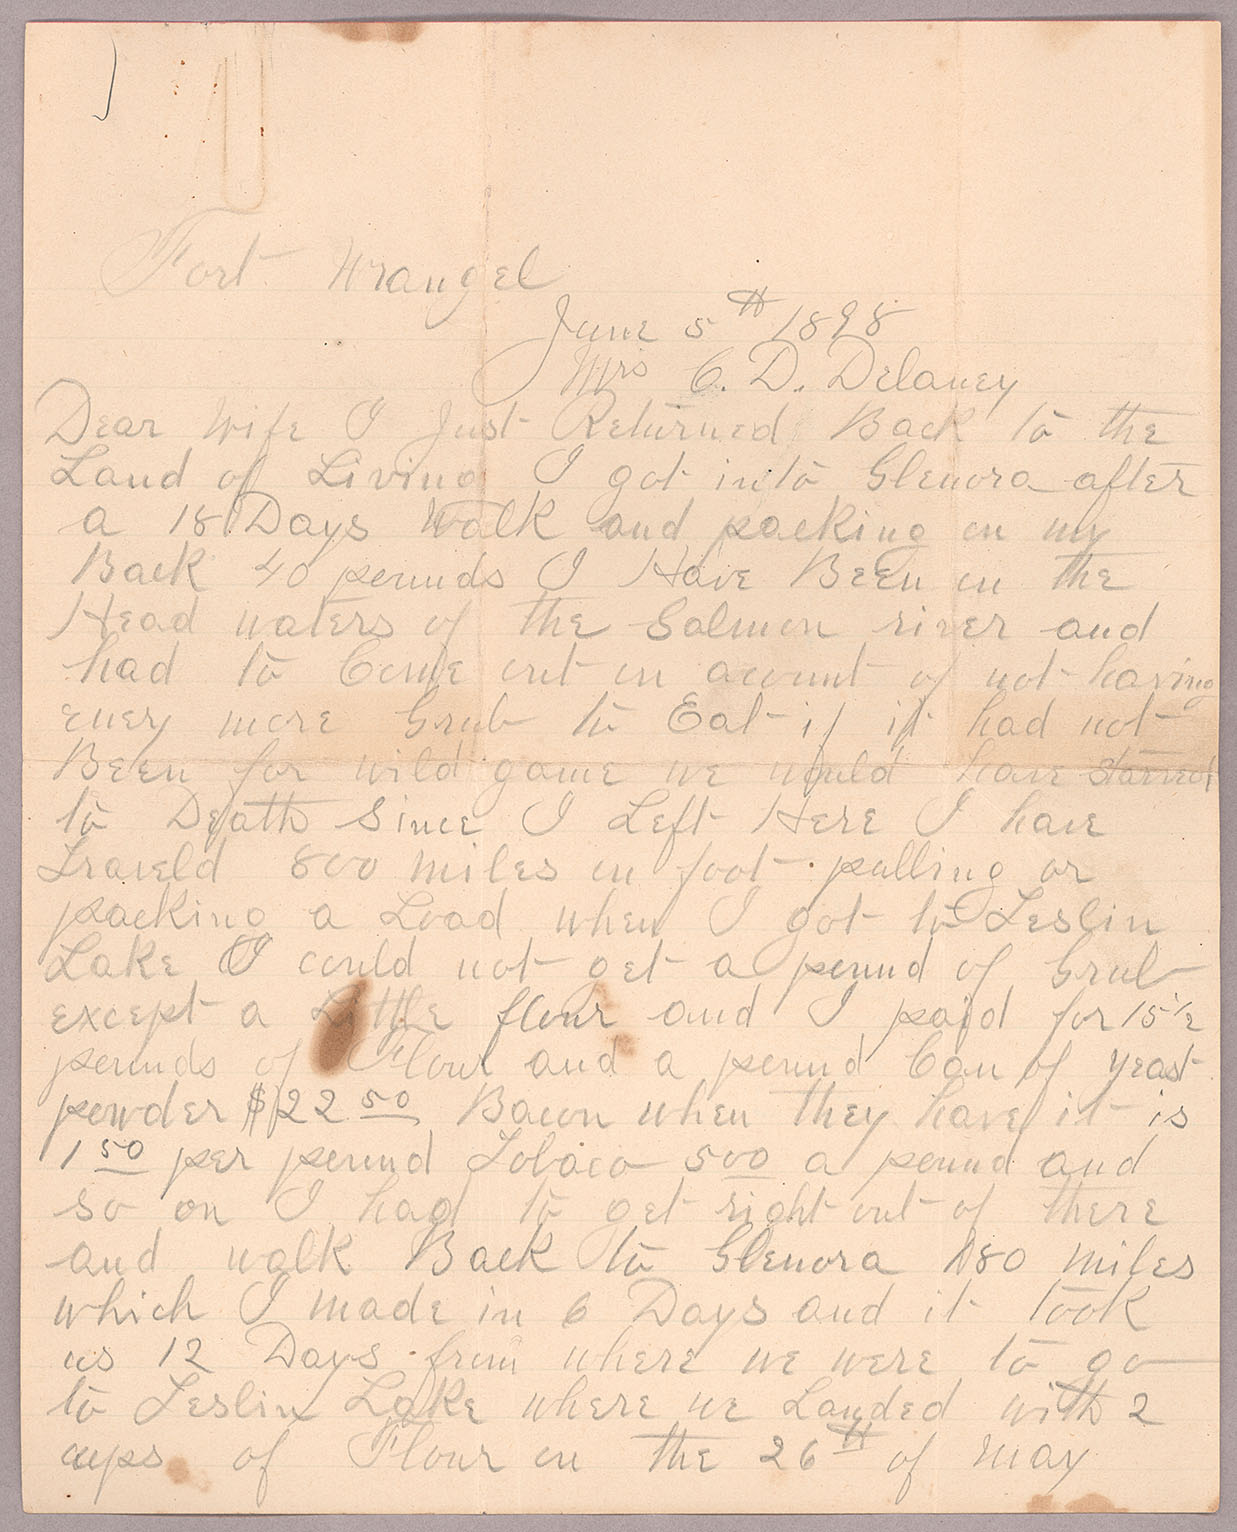 Fort Wrangel
June 5th 1898
Mrs C. D. Delaney
Dear Wife I Just Returned Back to the
Land of Living I got into Glenora after
a 18 Days Walk and packing on my
Back 40 pounds I Have Been on the
Head waters of the Salmon river and
had to Come out on acount of not having
eney more Grub to Eat if it had not
Been for wild game we would have starved
to Death Since I Left Here I have
Traveld 800 miles on foot pulling or
packing a Load when I got to Teslin
Lake I could not get a pound of Grub
except a Little flour and I paid for 15 1/2
pounds of Flour and a pound Can of yeast
powder $22 50 Bacon when they have it is
1 50 per pound Tobaco 500 a pound and
so on I had to get right out of there
and walk Back to Glenora 180 miles
which I made in 6 Days and it took
us 12 Days from where we were to go
to Teslin Lake where we Landed with 2
cups of Flour on the 26th of May